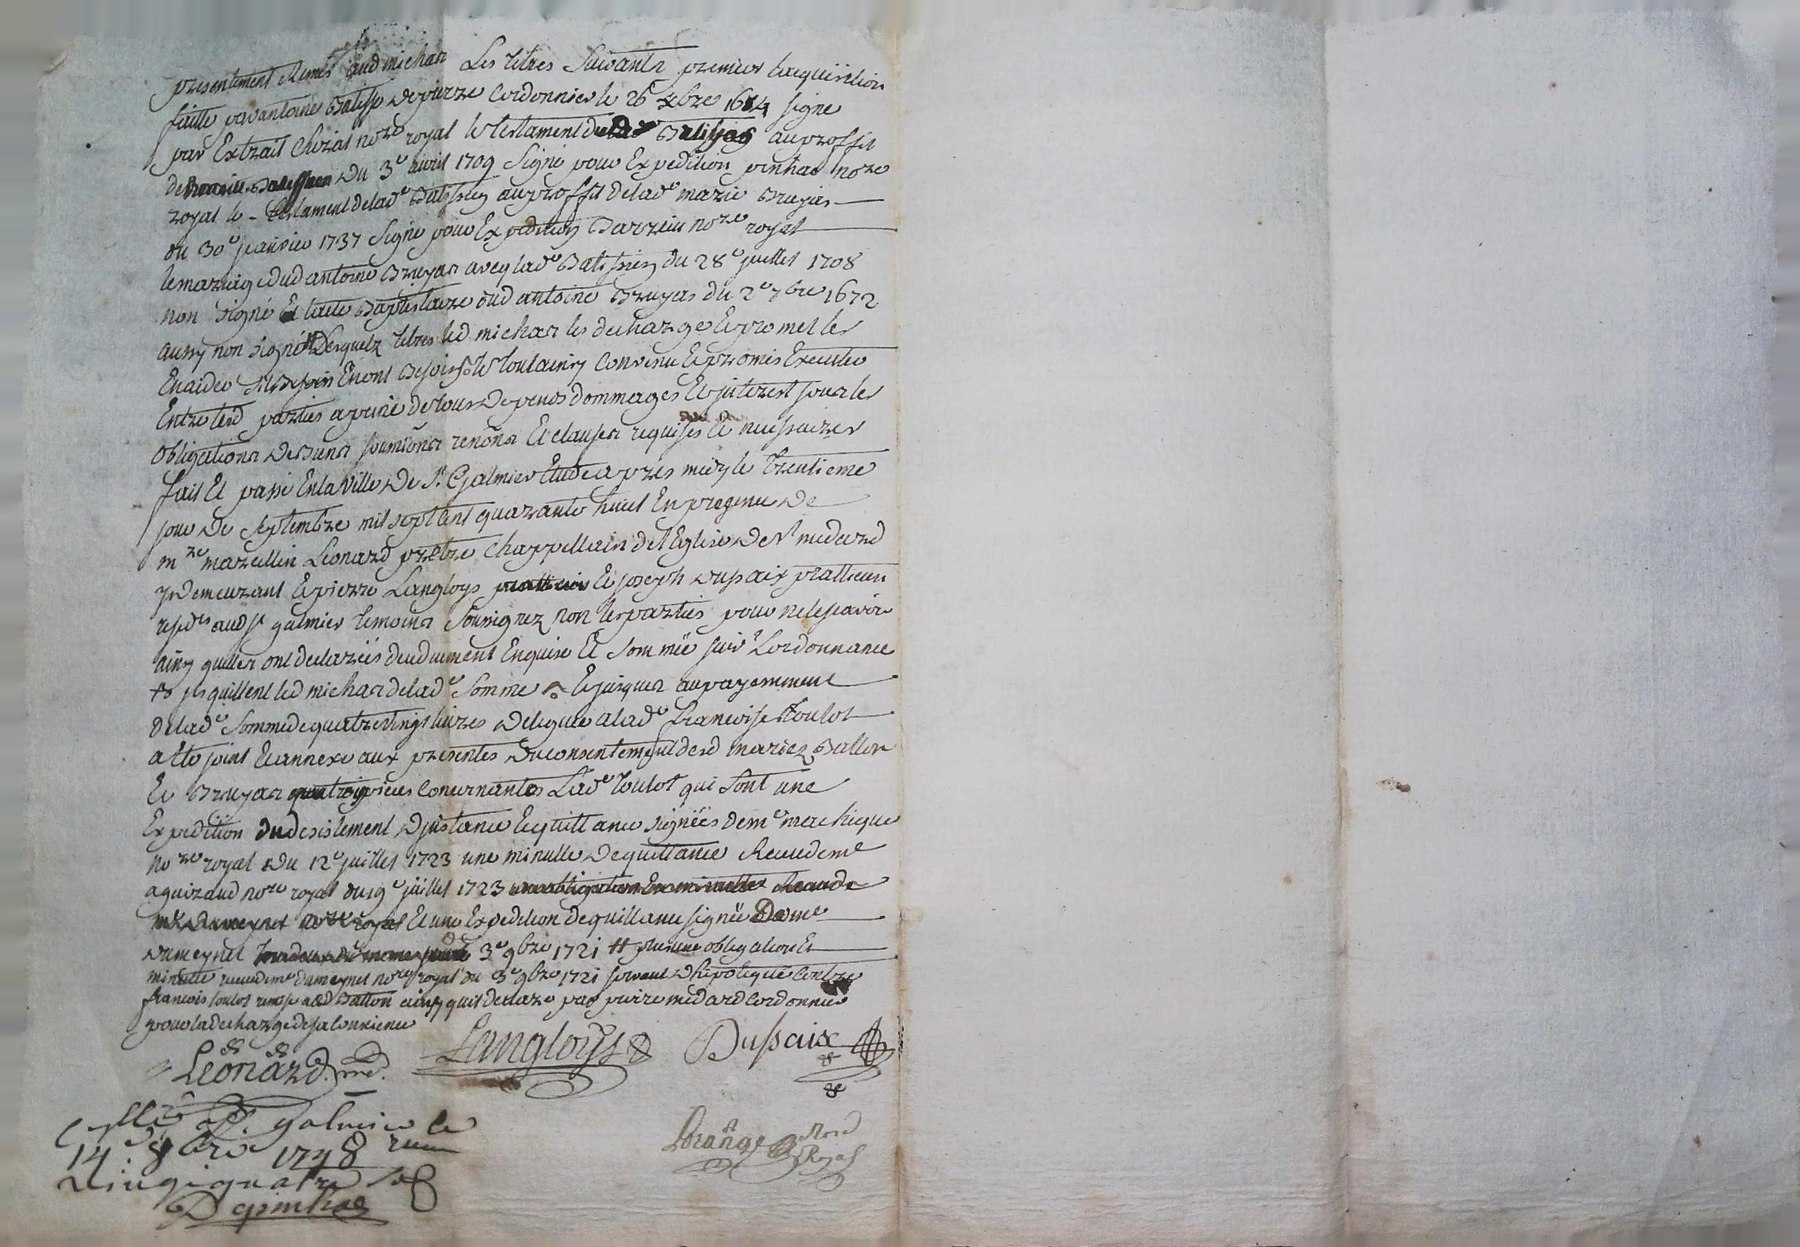 presentement Remis aud michar Les titres Suivants premier lacquisition
faitte par antoine Batissi de pierre Cordonnier le 26e xbre 1614 signe
par Extrait Chirat nore royal le testament du au proffit
de du 3e avril 1709 Signé pour Expedition pinhac nore
royal le testament de lade Batissiez au proffit de lade marie Bruyas
du 30e janvier 1737 Signé pour Expedition Barrieu nore royal
le mariage dud antoine Bruyas avecq lade Batissiez du 28e juillet 1708
non signé Et laite Baptistaire dud antoine Bruyas du 2e 7bre 1672
aussy non signé Desquelz titres led michar les decharge Et promet les
En aider sil Besoin En ont Besoin Et tout ainsy Convenu Et promis Executer
Entre lesd parties a peine de tous depens dommages Et interest sous les
obligations de leurs soumions renons Et clauses requises Et necessaires
fait Et passé En la Ville de St Galmier Etude apres midy le trentieme
jour de Septembre mil sept Cent quarante huict En presence de
mre marcellin Leonard prêtre Chappellain de lEglise de St medard
y demeurant Et pierre Langloys Et joseph dussaix pratticiens
resids aud st galmier temoins Soussignez non les parties pour ne le scavoir
ainsy quilles ont declarées deuduement Enquise Et sommée suivt Lordonnance
quittent led michar de lade Somme Et jusques au payemment
de lade Somme de quatre vingt livres deleguée a lade francoise toulot
a Eté joint Et annexé aux presentes du consentement desd mariez Ballon
Et Bruyas pieces Concernantes Lade toulot qui Sont une
Expedition du desistement dinstance Et quittance signées de me merchique
nore royal du 12e juillet 1723 une minutte de quittance Receu de me
aguiraud nore royal du 19e juillet 1723
Et une Expedition de quittance signée De me
dameynet 3e 9bre 1721 # plus une obligation Et
minutte receu de me dameynet nore royal du 3e 9bre 1721 servant dhipoteque Contre
francois toulot remise aud Ballon ainsy quil declare par pierre medard Cordonnier
pour la decharge de sa Conscience
Leonard. Langloÿs Dussaix
Cllé a St. galmier le
14e 8bre 1748 recu
vingt quatre sol
Depinhac
Lorange Nore Royal